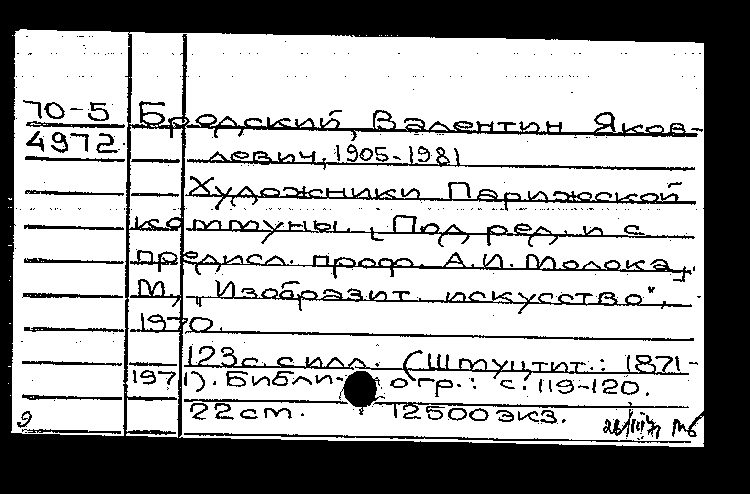 70-5 Бродский, Валентин Яков-
4972 левич, 1905-1981
Художники Парижской
коммуны. [Под ред. и с
предисл. проф. А.И. Молока].
М., "Изобразит. искусство",
1970.
123 с. с илл. (Штуцтит.: 1871-
1971). Библиогр.: с. 119-120.
22 cm. 12500 экз.
9